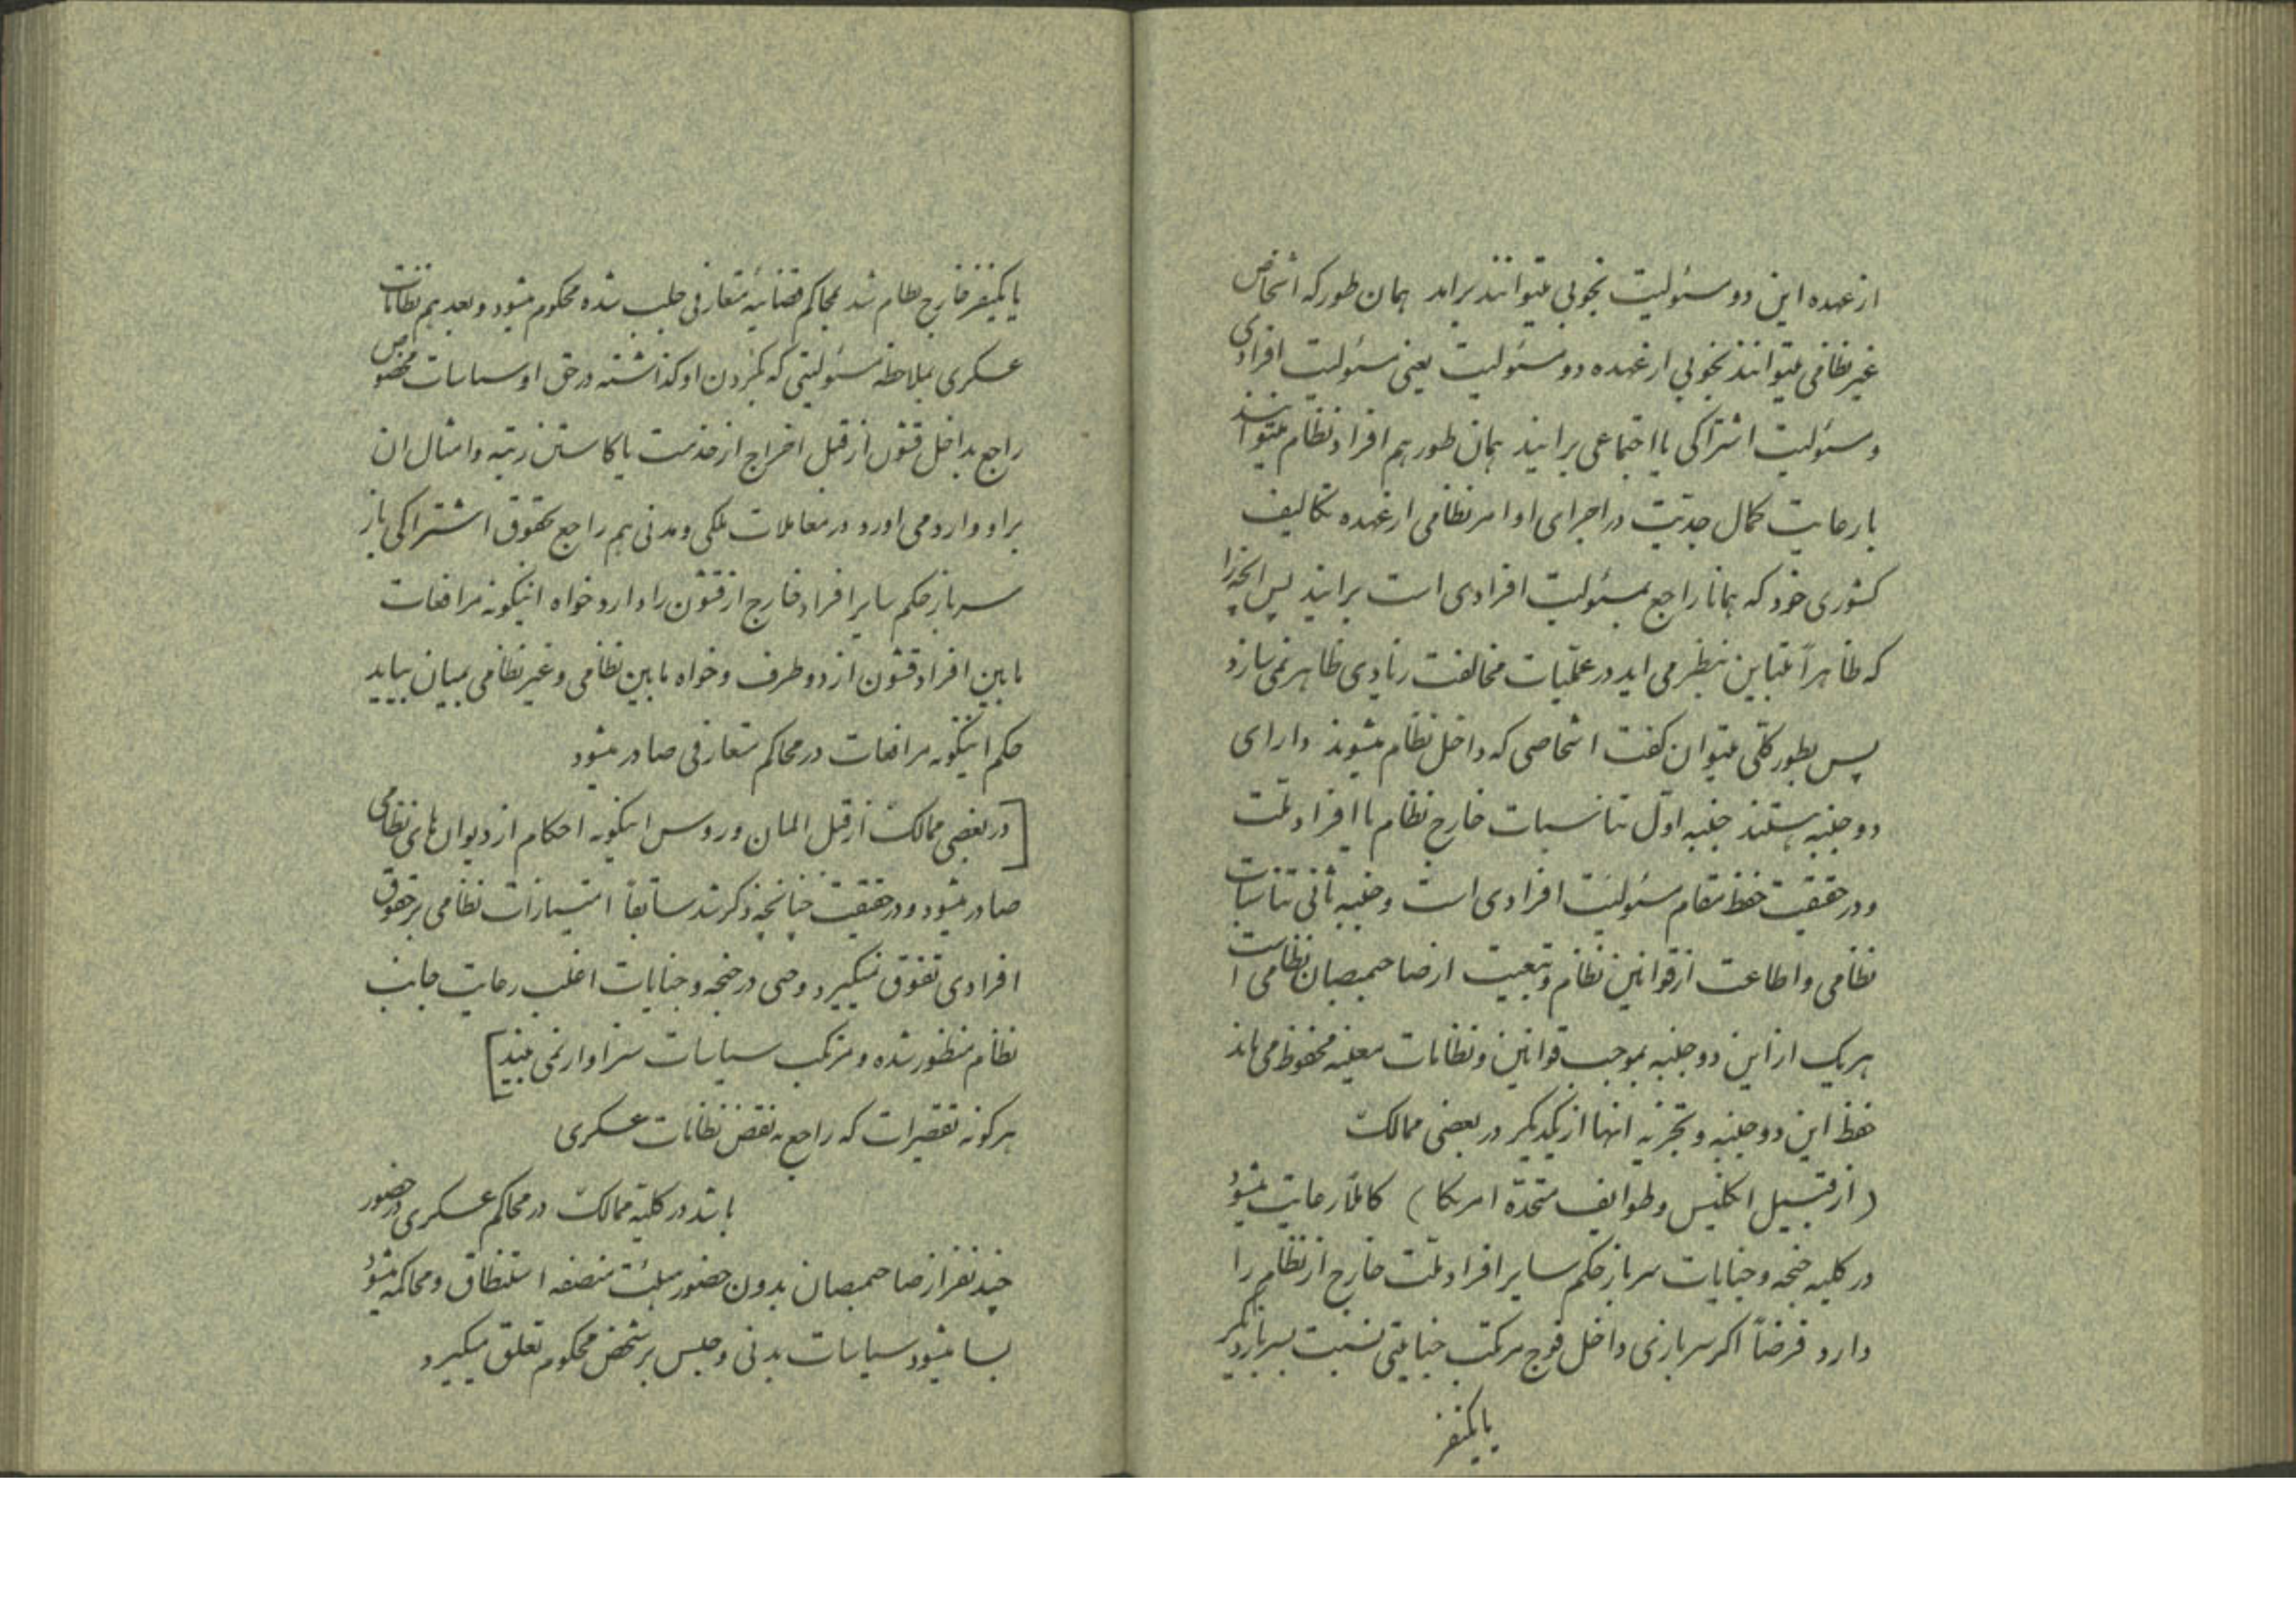 از عهده این دو مسئولیت بخوبی میتوانند برایند همان طور که اشخاص
غیر نظامی میتوانند بخوبی از عهده دو مسئولیت یعنی مسئولیت افرادی
و مسئولیت اشتراکی یا اجتماعی برایند همان طور هم افراد نظام میتوانند
با رعایت کمال جدیت در اجرای اوامر نظامی از عهده تکالیف
کشوری خود که همانا راجع بمسئولیت افرادی است برایند پس انچه را
که ظاهراً متباین بنظر می اید در عملیات مخالفت زیادی ظاهر نمی سازد
پس بطور کلی میتوان کفت اشخاصی که داخل نظام میشوند دارای
دو جنبه هستند جنبه اول تناسبات خارج نظام با افراد ملت
و در حقیقت حفظ مقام مسئولیت افرادی است و جنبه ثانی تناسبات
نظامی و اطاعت از قوانین نظام و تبعیت از صاحبمنصبان نظامی است
هر یک از این دو جنبه بموجب قوانین و نظامات معینه محفوظ می ماند
حفظ این دو جنبه و تجزیه انها از یکدیکر در بعضی ممالک
(از قبیل انکلیس و طوایف متحدة امریکا) کاملاً رعایت میشود
در کلیه جنحه و جنایات سرباز حکم سایر افراد ملت خارج از نظام را
دارد فرضاً اکر سربازی داخل فوج مرتکب جنایتی نسبت بسرباز دیکر
یا یکنفر
یا یکنفر خارج نظام شد بمحاکم قضائیه متعارفی جلب شده محکوم میشود و بعد هم نظامات
عسکری بملاحظه مسئولیتی که بکردن او کذاشته در حق او سیاسات مخصوص
راجع بداخل قشون از قبیل اخراج از خدمت یا کاستن رتبه و امثال ان
بر او وارد می اورد در معاملات ملکی و مدنی هم راجع بحقوق اشتراکی باز
سرباز حکم سایر افراد خارج از قشون را دارد خواه اینکونه مرافعات
مابین افراد قشون از دو طرف و خواه مابین نظامی و غیر نظامی بمیان بیاید
حکم اینکونه مرافعات در محاکم متعارفی صادر میشود
[در بعضی ممالک از قبیل المان و روس اینکونه احکام از دیوان های نظامی
صادر میشود و در حقیقت چنانچه ذکر شد سابقاً امتیازات نظامی بر حقوق
افرادی تفوق میکیرد و حتی در جنحه و جنایات اغلب رعایت جانب
نظام منظور شده و مرتکب سیاسات سزاوار نمی بیند]
هر کونه تقصیرات که راجع به نقض نظامات عسکری
باشد در کلیه ممالک در محاکم عسکری در حضور
چند نفر از صاحبمنصبان بدون حضور هیئت منصفه استنطاق و محاکمه میشود
بسا میشود سیاسات بدنی و حبس بر شخص محکوم تعلق میکیرد